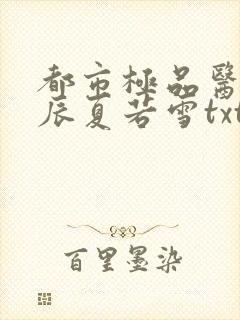 都市極品醫
辰夏若雪txt
百里墨染